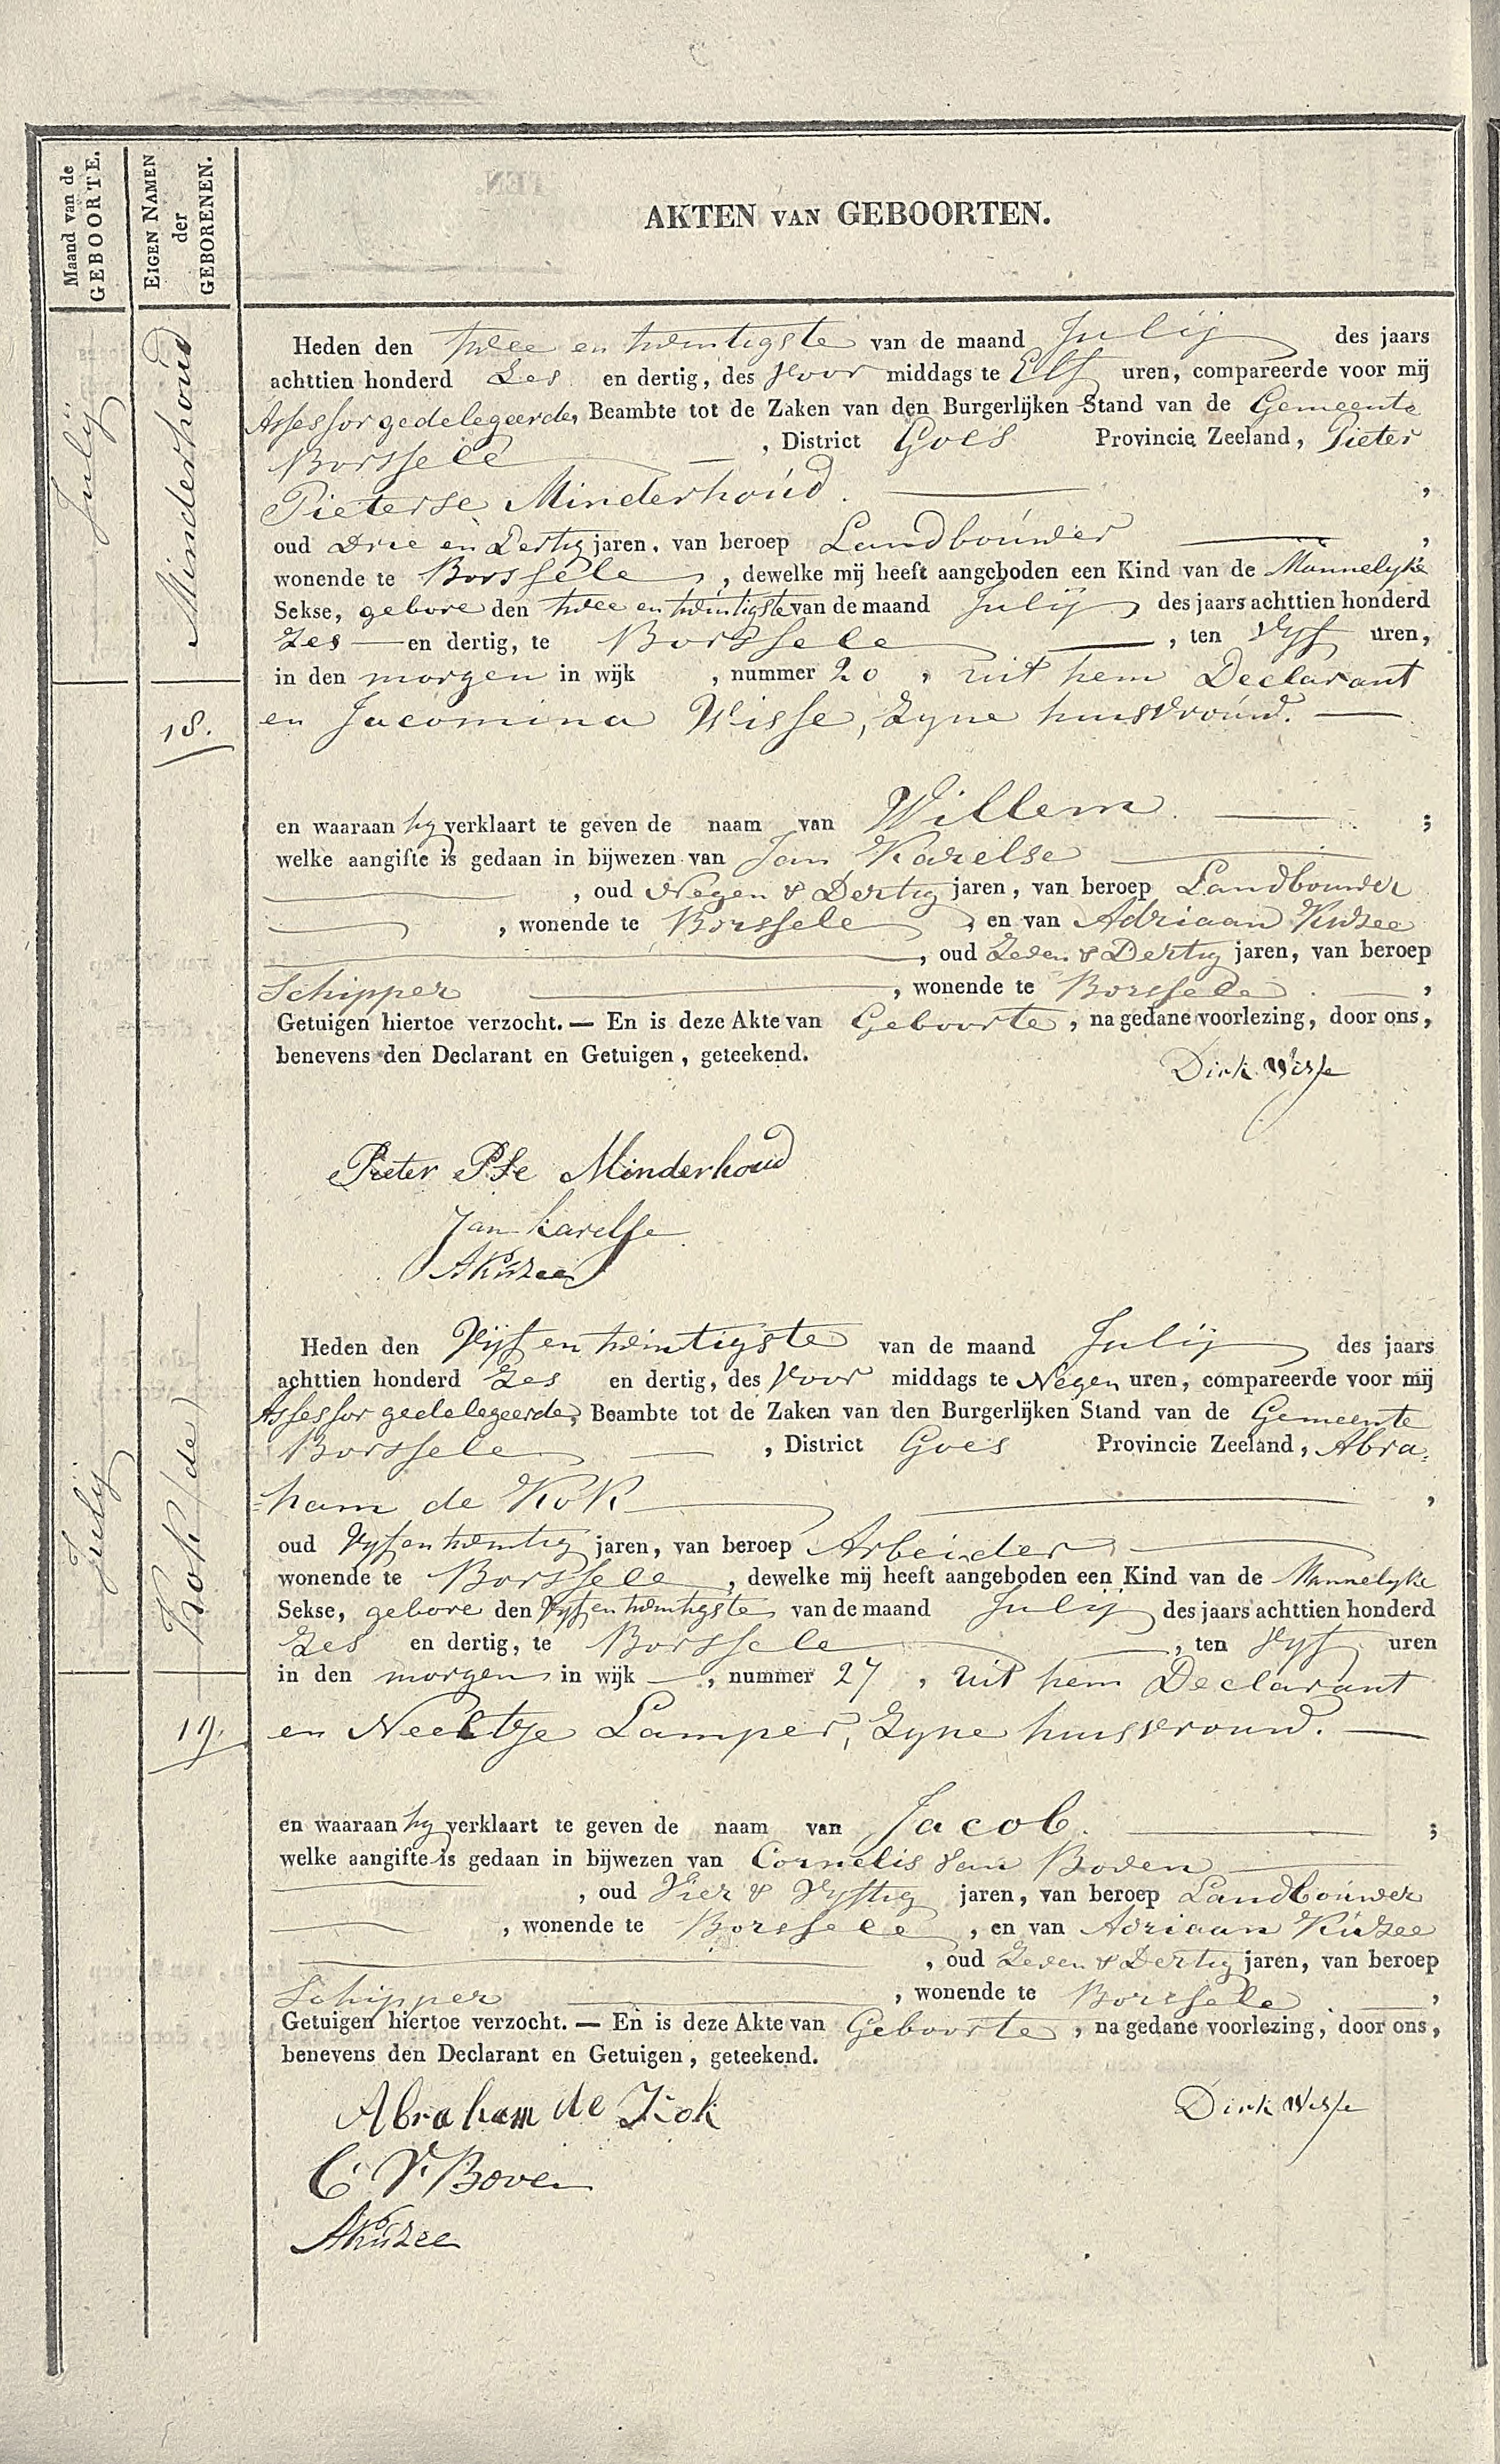 Maand van de
GEBOORTE.
EIGEN NAMEN
der
GEBORENEN.
AKTEN VAN GEBOORTEN.
Julij
Minderhoud
18.
Heden den twee en twintigste van de maand Julij des jaars
achttien honderd Zes en dertig, des Voor middags te Elf uren, compareerde voor mij
Assessor gedelegeerde, Beambte tot de Zaken van den Burgerlijken Stand van de Gemeente
Borssele, District Goes Provincie Zeeland, Pieter
Pieterse Minderhoud.,
oud Drie en Dertig jaren, van beroep Landbouwer,
wonende te Borssele, dewelke mij heeft aangeboden een Kind van de Mannelyke
Sekse, gebore den twee en twintigste van de maand Julij des jaars achttien honderd
Zes en dertig, te Borssele, ten Vyf uren,
in den morgen in wijk , nummer 20, uit hem Declarant
en Jacomina Wisse, Zyne huisvrouw.
en waaraan hy verklaart te geven de naam van Willem ;
welke aangifte is gedaan in bijwezen van Jan Karelse
, oud Negen & Dertig jaren, van beroep Landbouwer
, wonende te Borssele, en van Adriaan Kuzee
, oud Zeven & Dertig jaren, van beroep
Schipper, wonende te Borssele,
Getuigen hiertoe verzocht. — En is deze Akte van Geboorte, na gedane voorlezing, door ons,
benevens den Declarant en Getuigen, geteekend.
Dirk Wisse
Pieter Pse Minderhoud
Jan Karelse
AKuzee
Julij
Kok (de)
19.
Heden den Vijf en twintigste van de maand Julij des jaars
achttien honderd Zes en dertig, des Voor middags te Negen uren, compareerde voor mij
Assessor gedelegeerde, Beambte tot de Zaken van den Burgerlijken Stand van de Gemeente
Borssele, District Goes Provincie Zeeland, Abra=
=ham de Kok,
oud Vyf en twintig jaren, van beroep Arbeider
wonende te Borssele, dewelke mij heeft aangeboden een Kind van de Mannelyke
Sekse, gebore den Vyf en twintigste van de maand Julij des jaars achttien honderd
Zes en dertig, te Borssele, ten Vyf uren
in den morgen in wijk —, nummer 27, uit hem Declarant
en Neeltje Lamper, Zyne huisvrouw.
en waaraan hy verklaart te geven de naam van Jacob. ;
welke aangifte is gedaan in bijwezen van Cornelis van Boven
, oud Vier & Vyftig jaren, van beroep Landbouwer
, wonende te Borssele, en van Adriaan Kuzee
, oud Zeven & Dertig jaren, van beroep
Schipper, wonende te Borssele,
Getuigen hiertoe verzocht. — En is deze Akte van Geboorte, na gedane voorlezing, door ons,
benevens den Declarant en Getuigen, geteekend.
Abraham de Kok
Dirk Wisse
C V. Boven
AKuzee